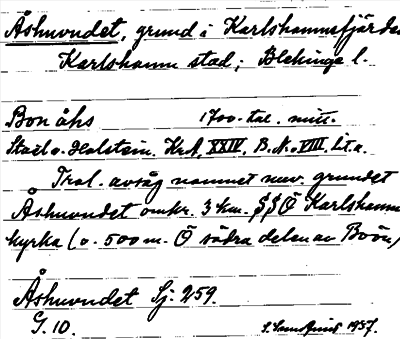 Åshuvudet, grund i Karlshamnsfjärden
Karlshamns stad; Blekinge l.
Bon åhs 1700-tal. mitt.
Stael v. Holstein. KrA, XXIV, B. N:o VIII. Lt. a.
Trol. avsåg namnet nuv. grundet
Åshuvudet omkr. 3 km. SSÖ Karlshamns
kyrka (o. 500 m. Ö södra delen av Boön)
Åshuvudet Sj: 259.
G. 10. 1937.